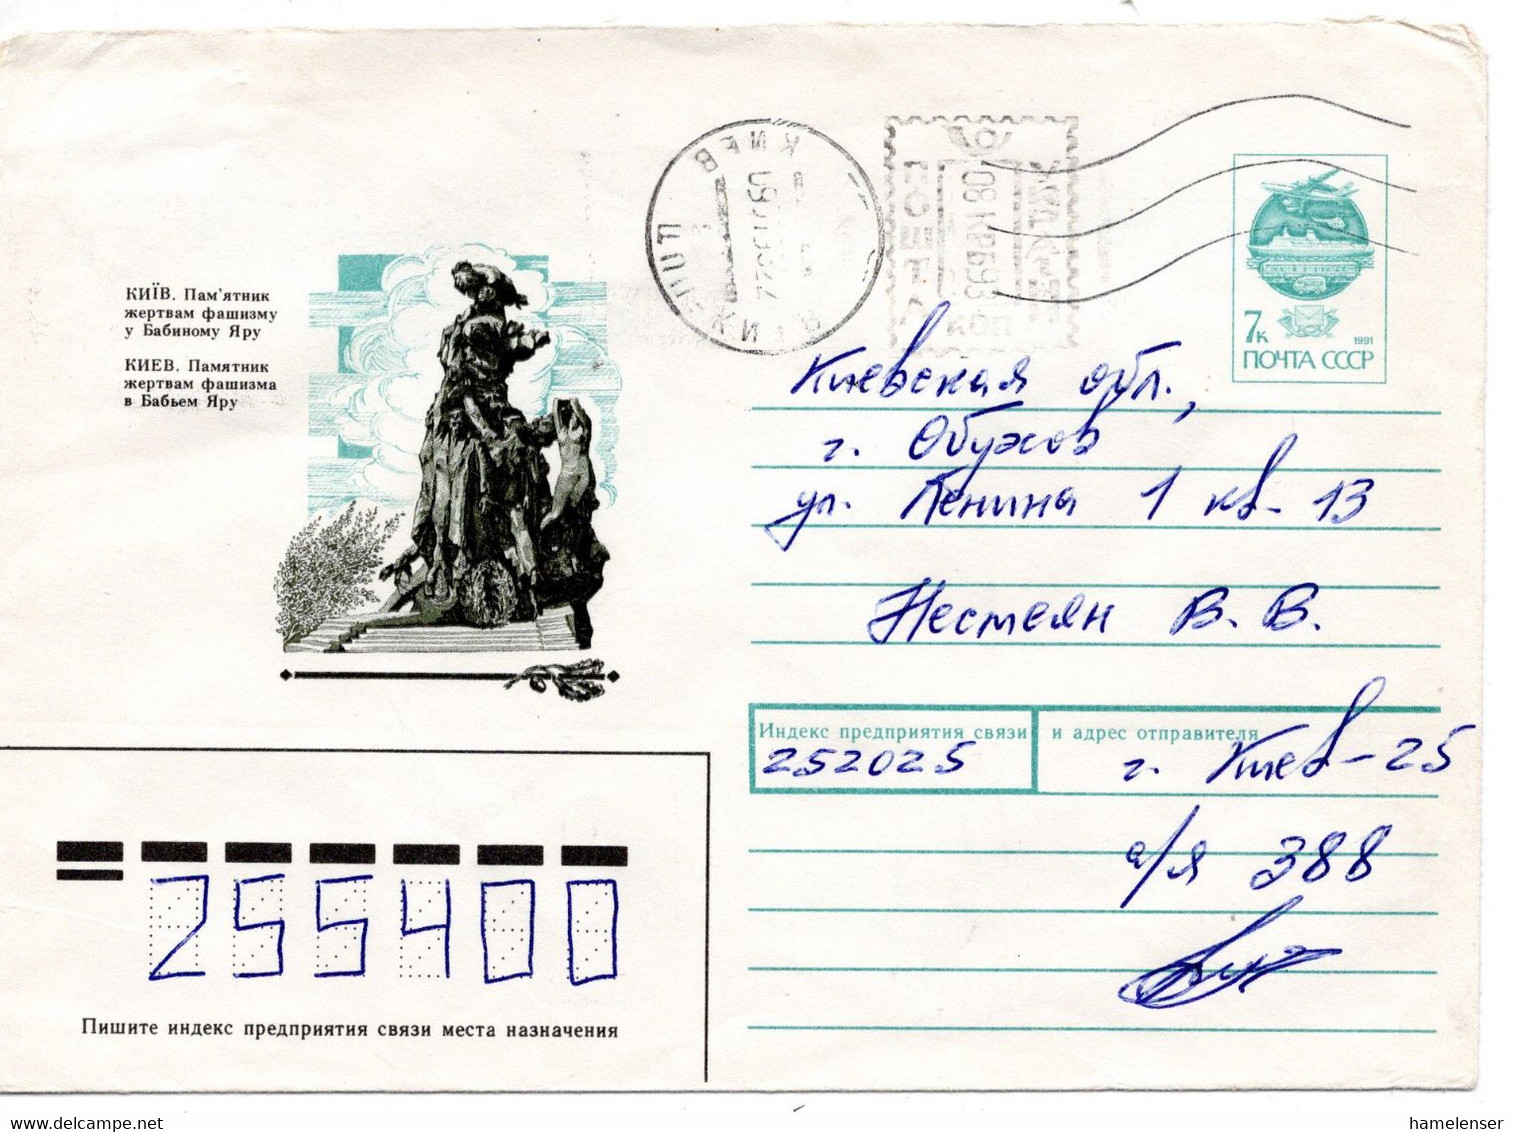 КИЇВ. Пам'ятник
жертвам фашизму
у Бабиному Яру
КИЕВ. Памятник
жертвам фашизма
в Бабьем Яру
КИЕВ
КИЇВ
ПОШТА
коп
7к
1991
ПОЧТА СССР
Киевская обл.,
г. Обухов
ул. Ленина 1 кв. 13
Нестеян В. В.
Индекс предприятия связи и адрес отправителя
252025 г. Киев-25
а/я 388
255400
Пишите индекс предприятия связи места назначения
hamelenser